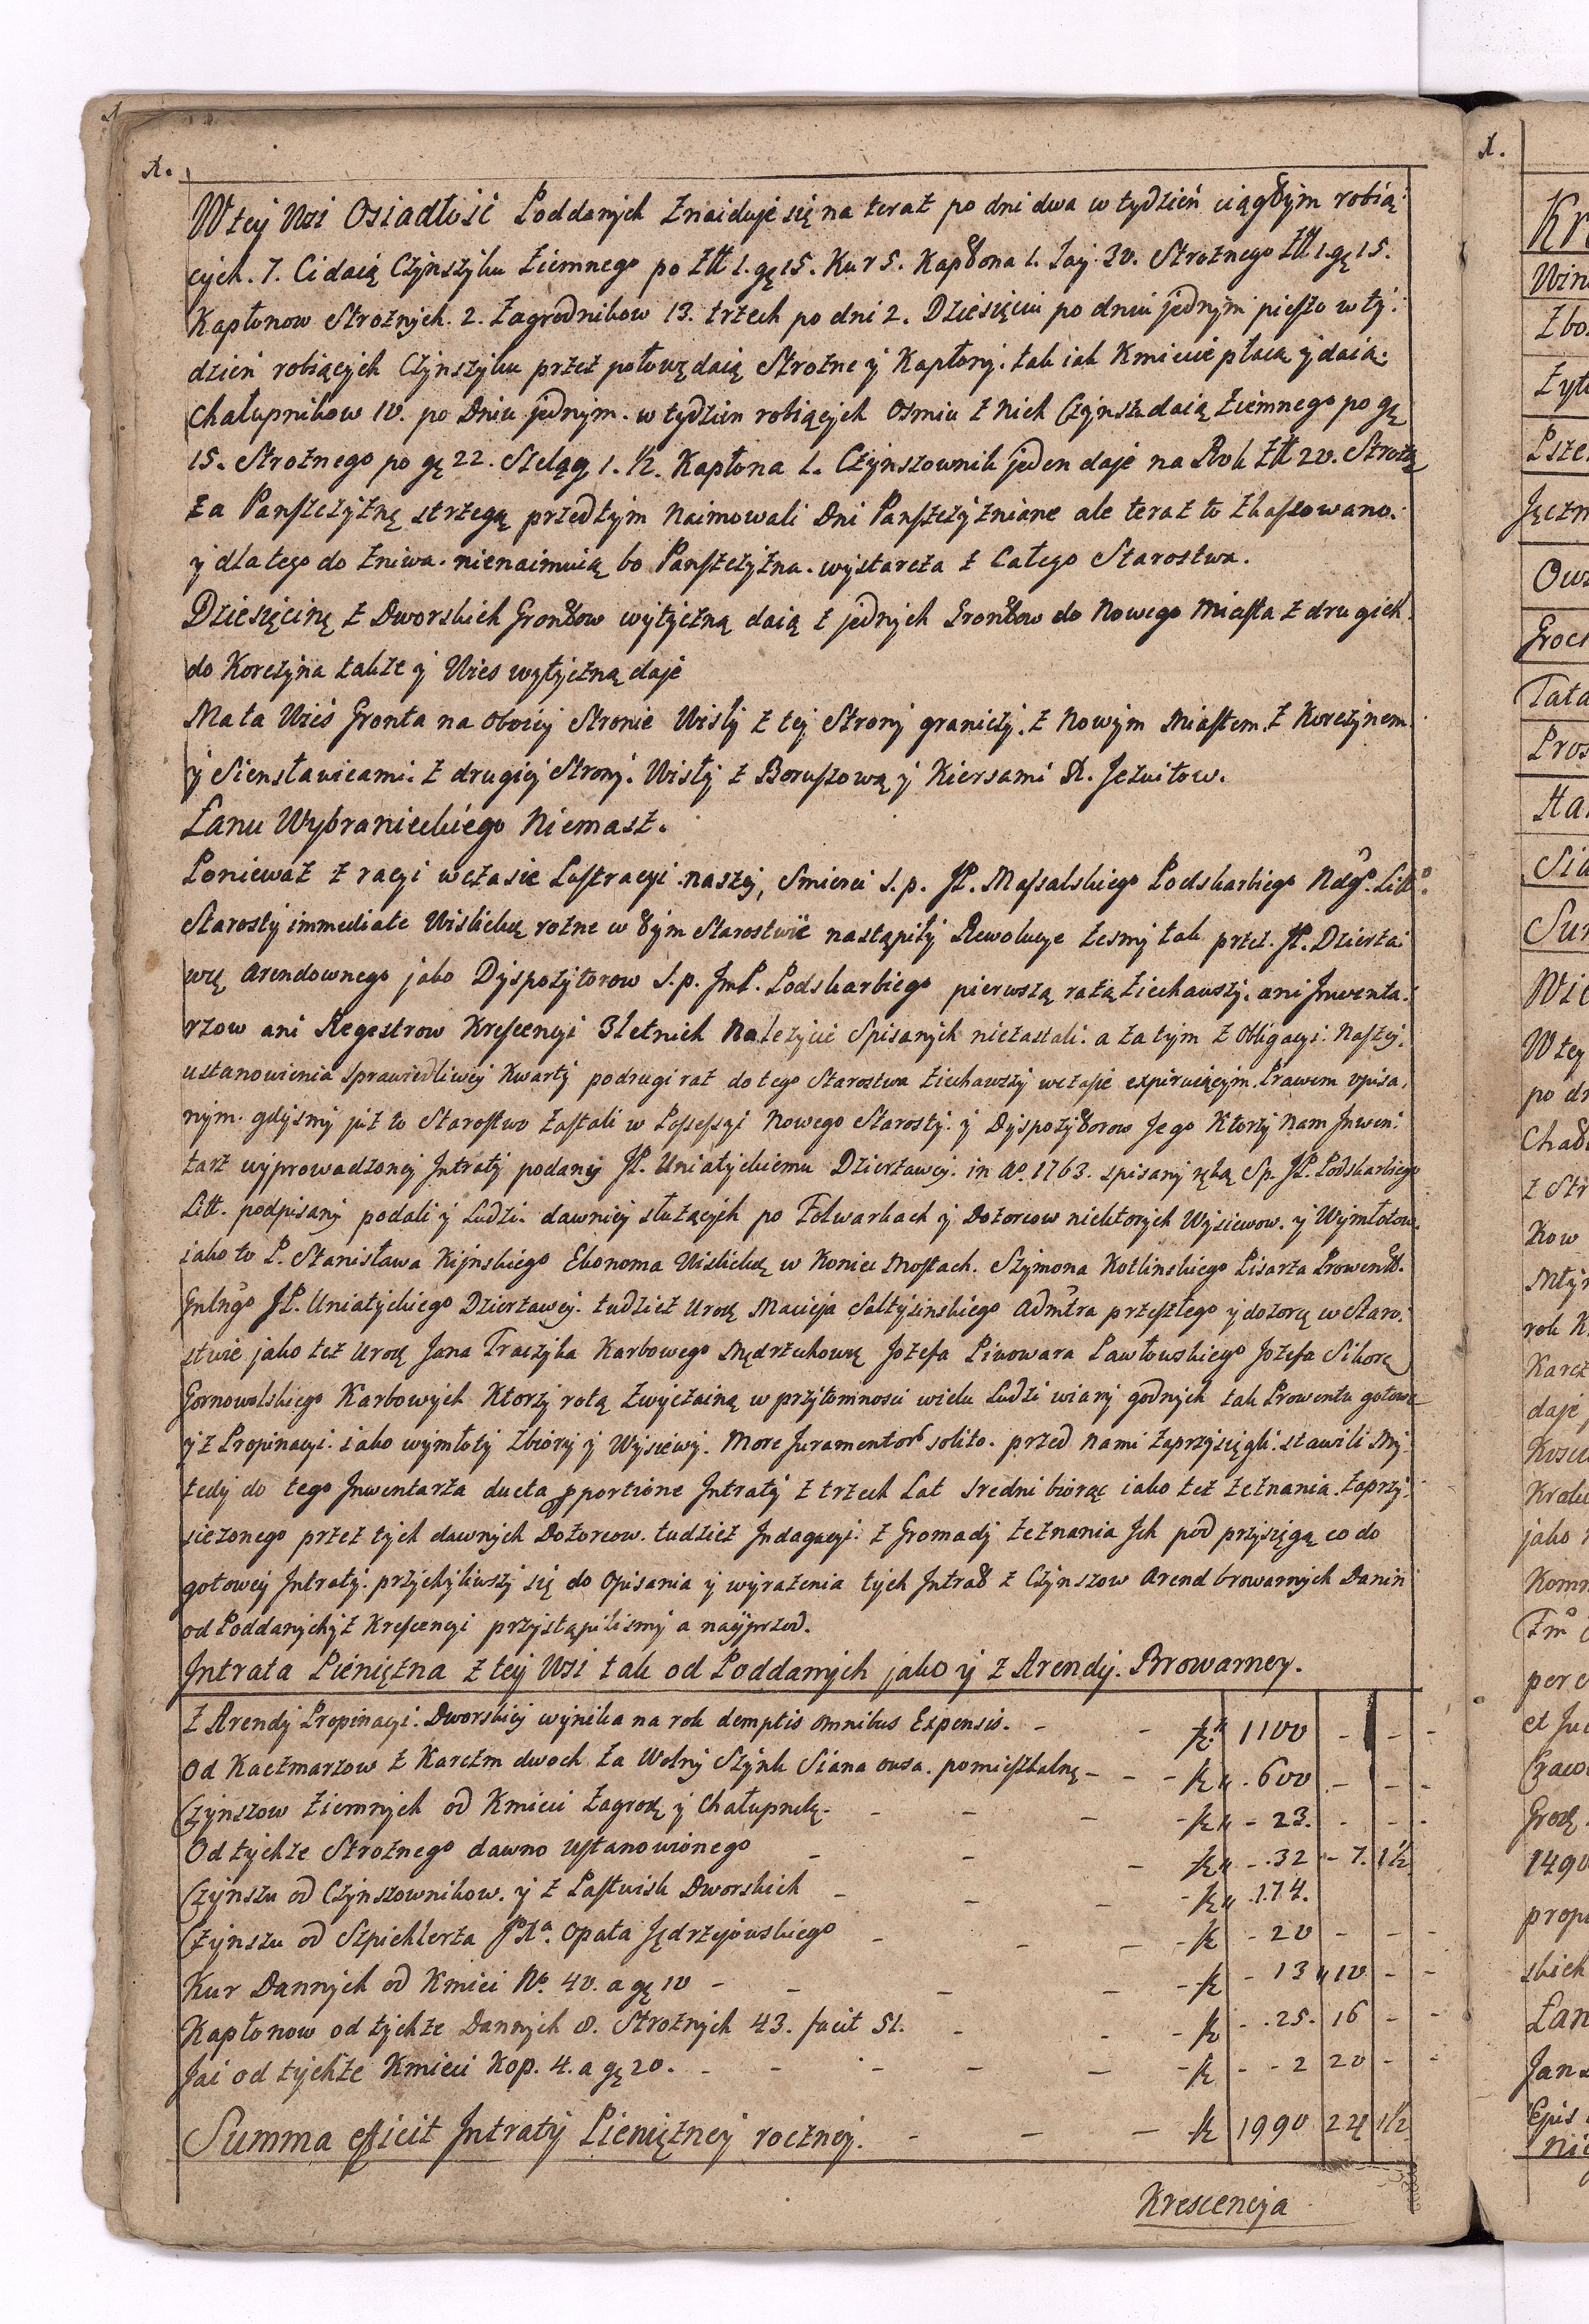 W tey Wsi Osiadłość Poddanych znaiduje się na teraz po dni dwa w tydzień ciągłym robią:
cych. 7. Ci daią Czynszyku Ziemnego po Złł 1. gę 15. Kur 5. Kapłona 1. Jay. 30. Strożnego Złł 1. gę 15.
Kapłonow Strożnych. 2. Zagrodnikow 13. trzech po dni 2. Dziesięciu po dniu jednym pieszo w ty:
dzień robiących Czynszyku przez połowę daią Strożne y Kapłony. tak iak Kmiecie płacą y daią.
Chałupnikow 10. po Dniu jednym. w tydzien robiących Osmiu z nich Czynszu daią Ziemnego po gę
15. Strożnego po gę 22. Szelągę 1. ½. Kapłona 1. Czynszownik jeden daje na Rok Złł 20. Strożą
za Panszczyznę strzegą przedtym Naimowali Dni Panszczyzniane ale teraz to zkassowano.
y dla tego do Zniwa. nienaimuią bo Panszczyzna. wystarcza z Całego Starostwa.
Dziesięcinę z Dworskich Grontow wytyczną daią z jednych Grontow do Nowego Miasta z drugich.
do Korczyna także y Wies wytyczną daje
Mata Wieś Gronta na oboiey Stronie Wisły z tej Strony graniczy. z Nowym Miastem. z Korczynem
y Sienstawicami. z drugiey Strony. Wisły z Boruszową y Kiersami X. Jezuitow.
Łanu Wybranieckiego Niemasz.
Ponieważ z racyi w czasie Lustracyi naszey, Smierci S. p. JP. Massalskiego Podskarbiego Ndgo. Litto.
Starosty immediate Wislickię rożne w tym Starostwie nastąpiły Rewolucye żesmy tak przez. JP. Dzierżai
wcę Arendownego jako Dyspozytorow S. p. JmP. Podskarbiego pierwszą ratą ziechawszy. ani Jnwenta:
rzow ani Regestrow Krescencyi 3letnich Należycie Spisanych niezastali. a za tym z Obligacyi. Naszey.
ustanowienia sprawiedliwey Kwarty podrugi raz do tego Starostwa ziechawszy w czasie expiruiącym. Prawem opisa,
nym. gdysmy już to Starostwo zastali w Possessyi Nowego Starosty. y Dyspozytorow Jego Ktorzy Nam Jnwen:
tarz wyprowadzoney Jntraty podany JP. Uniatyckiemu Dzierżawcy. in Ao. 1763. spisany ręką Sp. JP. Podskarbiego
Litt. podpisany podali y Ludzi. dawniey służących po Folwarkach y Dozorcow niektorych Wysiewow. y Wymłotow.
iako to P. Stanisława Kijnskiego Ekonoma Wislickię w Koniec Mostach. Szymona Kotlinskiego Pisarza Prowent.
Gnlnego JP. Uniatyckiego Dzierżawcy. tudzież Urodę Macieja Sołtyzinskiego Admtra przeszłego y dozorcę w Staro:
stwie jako też Urodę Jana Traczyka Karbowego Mędrzechowię Jozefa Piwowara Pawłowskiego Jozefa Sikorę
Gornowolskiego Karbowych Ktorzy rotą zwyczainą w przytomnosci wielu Ludzi wiary godnych tak Prowentu gotowe
y z Propinacyi. iako wymłoty Zbiory y Wysiewy. More Juramentor solito. przed Nami zaprzysięgli. stawili My.
tedy do tego Jnwentarza ducta pportione Jntraty z trzech Lat sredni biorąc iako też zeznania. zaprzy,
siezonego przez tych dawnych Dozorcow. tudzież Jndagacyi. z Gromady zeznania Jch pod przysięgą co do
gotowey Jntraty. przychyliwszy się do Opisania y wyrażenia tych Jntrat z Czynszow Arend browarnych Danin
od Poddanych y z Krescencyi przystąpilismy a nayprzod.
Jntrata Pieniężna z tey Wsi tak od Poddanych jako y z Arendy. Browarney.
Z Arendy Propinacyi. Dworskiey wynika na rok demptis omnibus Expensis. - - fę 1100 - - -
Od Kaczmarzow z Karczm dwoch za Wolny Szynk Siana owsa. pomieszkalnę - - - fę .600 - - -
Czynszow Ziemnych od Kmieci Zagrodę y Chałupnikę. - - - fę - 23. - - -
Od tychże Strożnego dawno ustanowionego - - - fę - .32 - 7. 1½
Czynszu od Czynszownikow. y z Pastwisk Dworskich - - - fę .174.
Czynszu od Szpichlerza JXa. Opata Jędrzejowskiego - - - fę - 20 - - -
Kur Dannych od Kmieci No. 40. a gę 10 - - - - fę - 13 10 - -
Kapłonow od tychże Dannych 8. Strożnych 43. facit 51. - - - fę - .25. 16 - -
Jai od tychże Kmieci Kop. 4. a gę 20. - - - - - fę - - 2 20 - -
Summa efficit Jntraty Pieniężney roczney. - - - fę 1990 24 1½
Krescencja